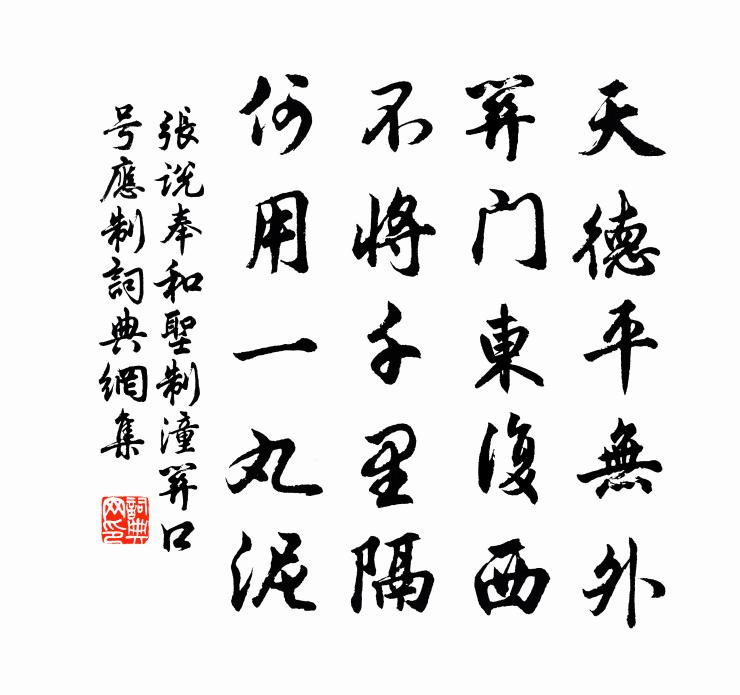 天德平無外
關門東復西
不將千里隔
何用一丸泥
張説奉和聖制潼關口
号應制詞典網集
詞典网印